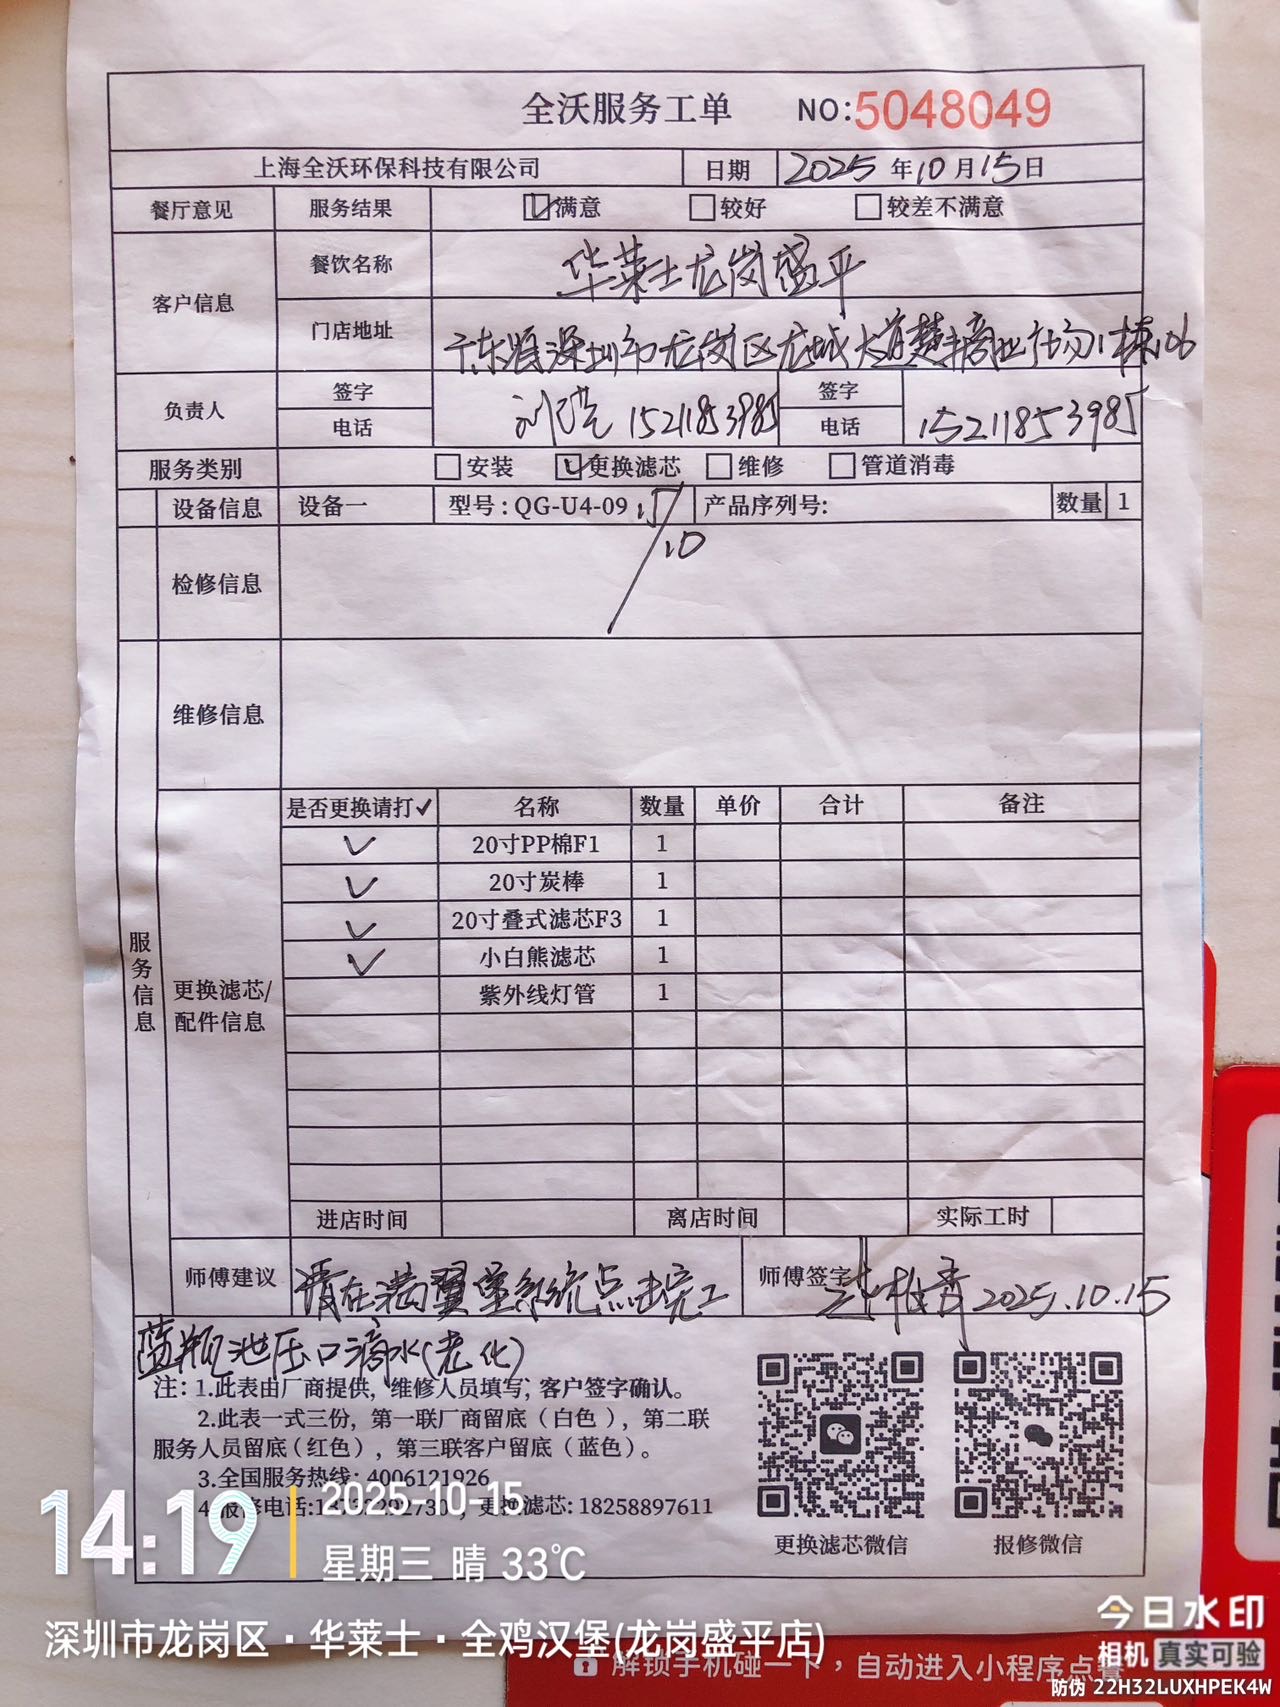 全沃服务工单 NO:5048049
上海全沃环保科技有限公司 日期 2025年10月15日
餐厅意见 服务结果 ☑满意 □较好 □较差不满意
客户信息 餐饮名称 华莱士龙岗盛平
门店地址 广东省深圳市龙岗区龙城大道 1栋106
负责人 签字 电话 刘 15211853985 签字 电话 15211853985
服务类别 □安装 ☑更换滤芯 □维修 □管道消毒
设备信息 设备一 型号:QG-U4-09 产品序列号: 数量 1
10
检修信息
维修信息
服务信息
更换滤芯/配件信息
是否更换请打✓ 名称 数量 单价 合计 备注
✓ 20寸PP棉F1 1
✓ 20寸炭棒 1
✓ 20寸叠式滤芯F3 1
✓ 小白熊滤芯 1
紫外线灯管 1
进店时间 离店时间 实际工时
师傅建议 请在满翼堡系统点击完工 师傅签字 2025.10.15
蓝瓶泄压口滴水(老化)
注:1.此表由厂商提供,维修人员填写,客户签字确认。
2.此表一式三份,第一联厂商留底(白色),第二联
服务人员留底(红色),第三联客户留底(蓝色)。
3.全国服务热线:4006121926
更换滤芯:18258897611
更换滤芯微信 报修微信
14:19 2025-10-15
星期三 晴 33℃
深圳市龙岗区·华莱士·全鸡汉堡(龙岗盛平店)
解锁手机碰一下,自动进入小程序点餐
今日水印
相机 真实可验
防伪 22H32LUXHPEK4W